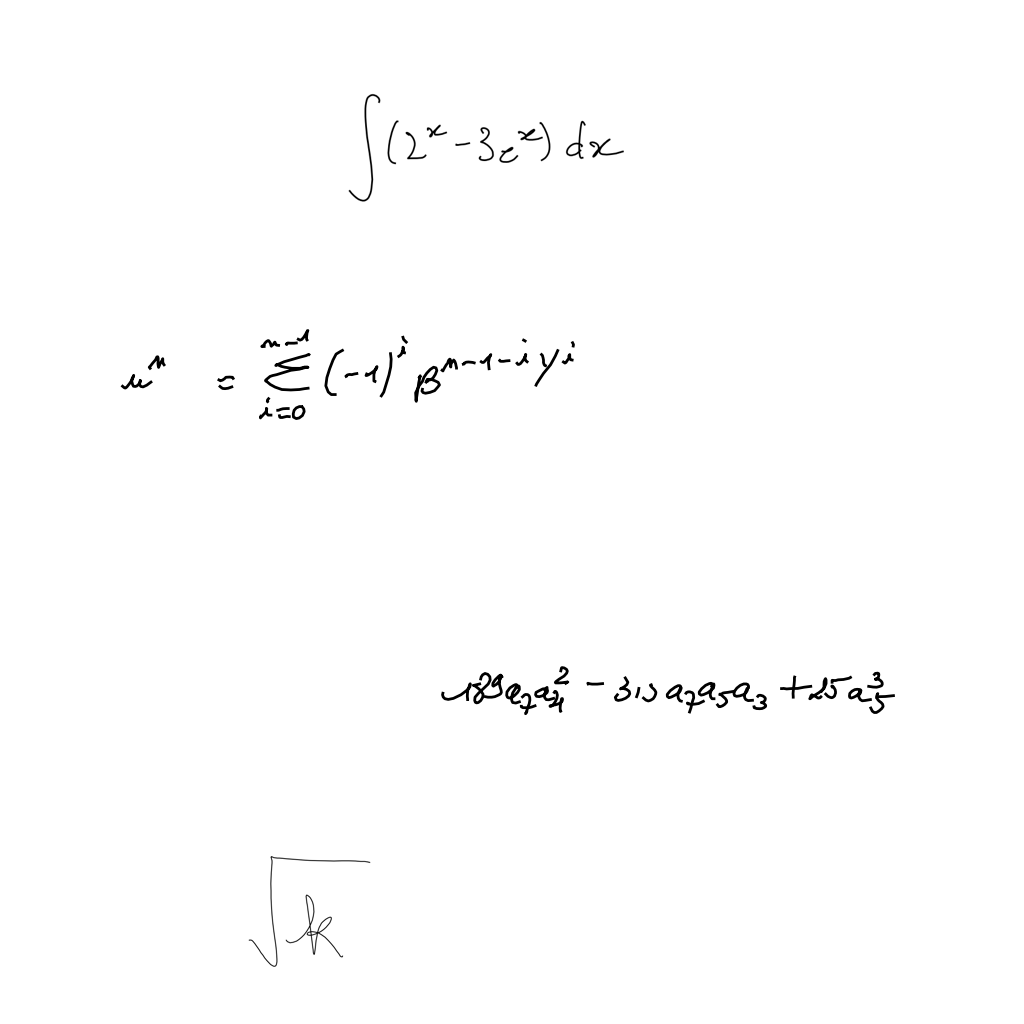 ∫(2^x - 3e^x) dx
u^n = ∑_{i=0}^{n-1} (-1)^i β^{n-1-i} γ^i
189a_7a_4^2 - 315a_7a_5a_3 + 25a_5^3
√k